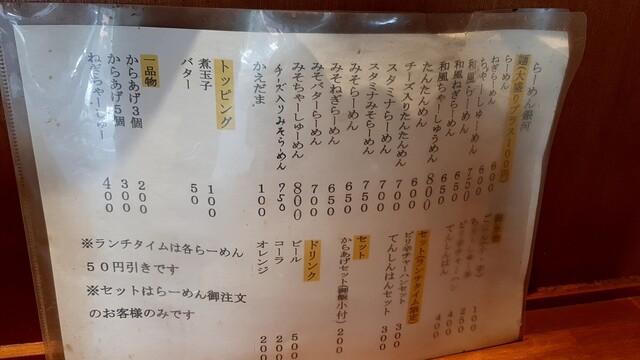 らーめん銀河
麺(大盛りプラス100円)
らーめん 600
ねぎらーめん 600
ちゃーしゅーめん 750
和風らーめん 600
和風ねぎらーめん 650
和風ちゃーしゅうめん 800
たんたんめん 600
チーズ入りたんたんめん 700
スタミナらーめん 700
スタミナみそらーめん 750
みそらーめん 650
みそねぎらーめん 650
みそバターらーめん 700
みそちゃーしゅーめん 800
チーズ入りみそらーめん 750
かえだま 100
トッピング
煮玉子 100
バター 50
一品物
からあげ3個 200
からあげ5個 300
ねぎちゃーしゅー 400
100
250
ピリ辛チャーハン 400
てんしんはん 400
セット(ランチタイム限定)
ピリ辛チャーハンセット 300
てんしんはんセット 300
セット
からあげセット(御飯小付) 200
ドリンク
ビール 500
コーラ 200
オレンジ 200
※ランチタイムは各らーめん
50円引きです
※セットはらーめん御注文
のお客様のみです